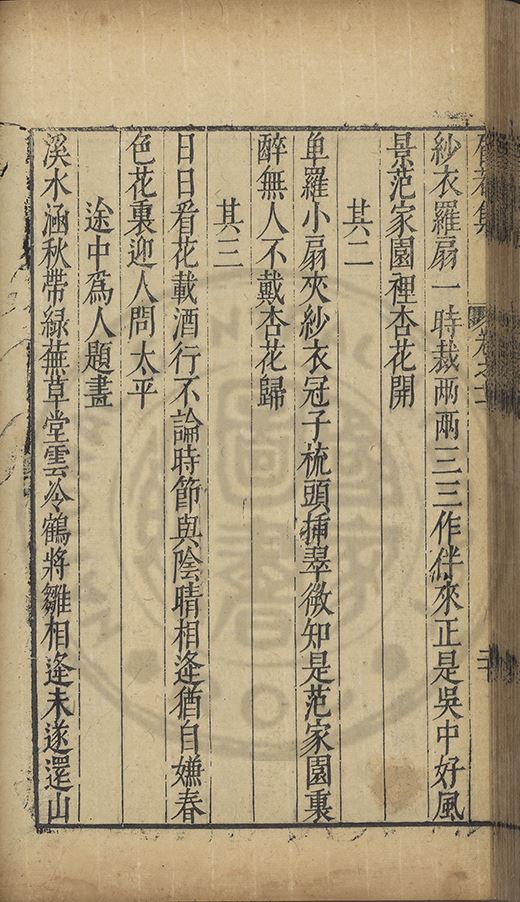 集
卷之十
紗衣羅扇一時裁两兩三三作伴來正是吳中好風
景范家園裡杏花開
其二
單羅小扇夾紗衣冠子梳頭揷翠微知是范家園裏
醉無人不戴杏花歸
其三
日日看花載酒行不論時節與陰晴相逢猶自嫌春
色花裏迎人問太平
途中爲人題畫
溪水涵秋帶綠蕪草堂雲冷鶴將雛相逢未遂還山